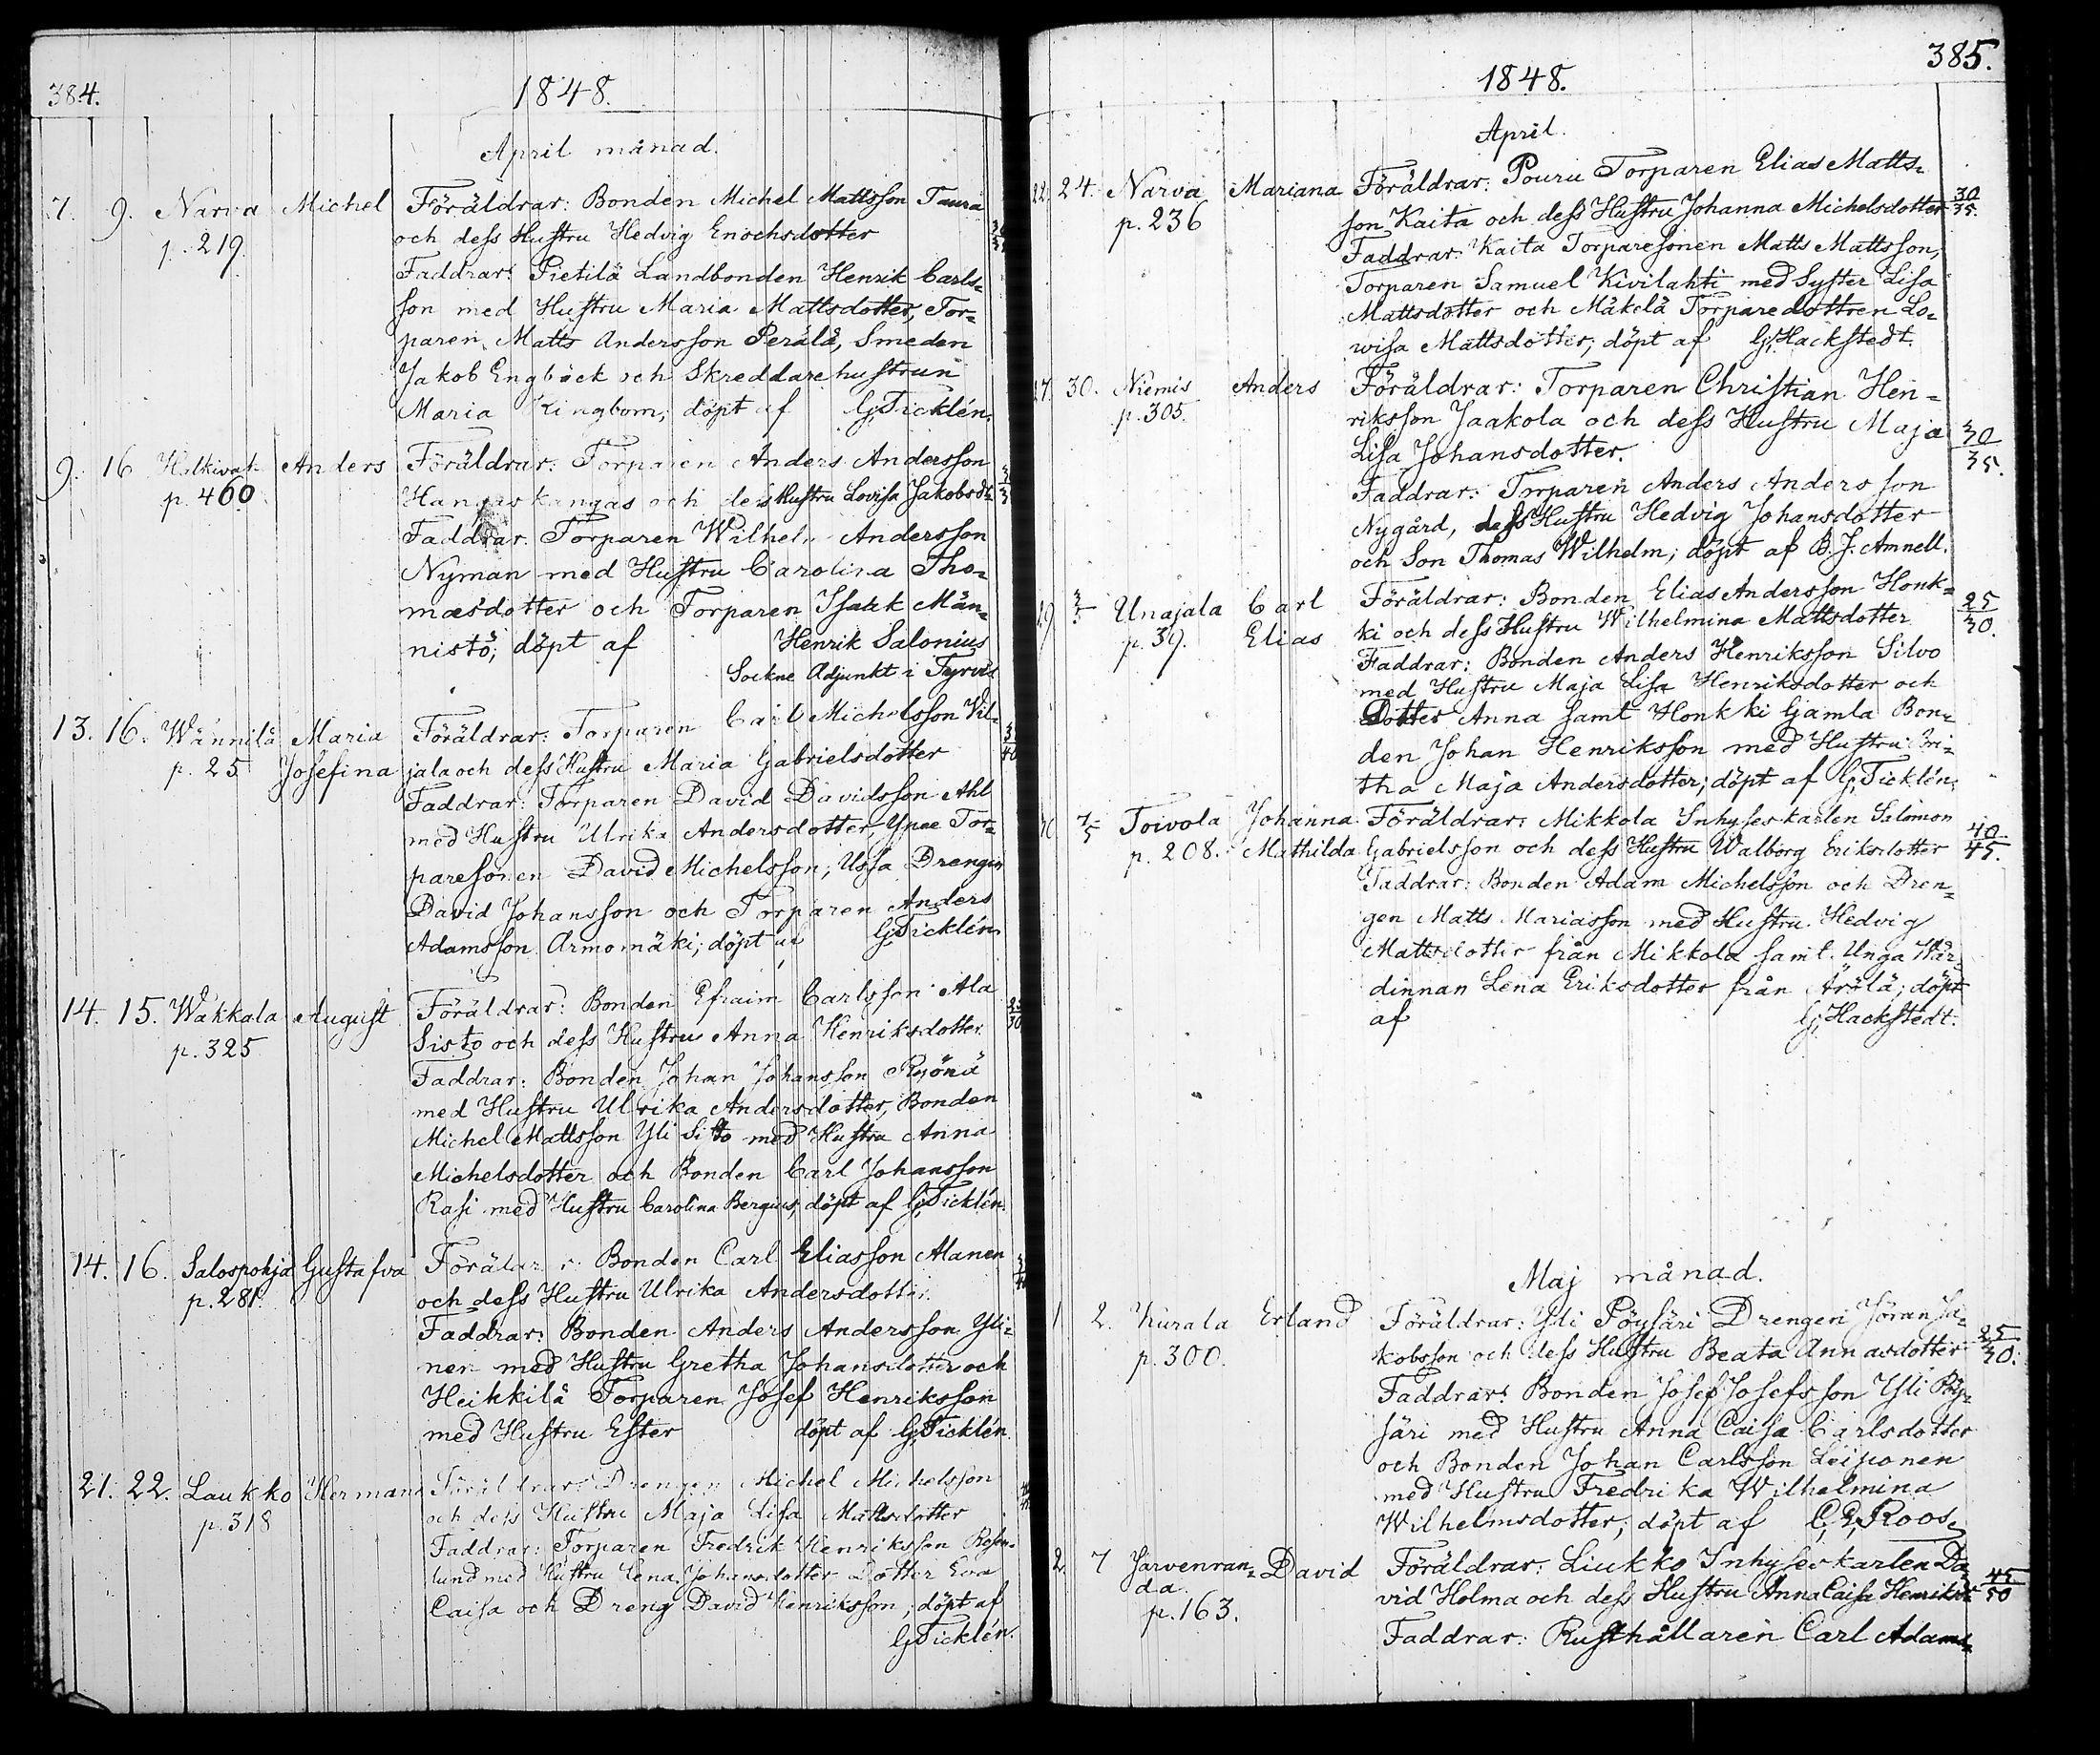 384.
1848.
April månad.
7. 9. Narva Michel Föräldrar: Bonden Michel Mattsson Taura
p. 219. och dess Hustru Hedvig Enochsdotter
Faddrar: Pietilä Landbonden Henrik Carls=
son med Hustru Maria Mattsdotter, Tor=
paren Matts Andersson Perälä, Smeden
Jakob Engbäck och Skreddarehustrun
Maria Kingbom; döpt af G. Ticklén.
9. 16 Anders Föräldrar: Torparen Anders Andersson
p. 460. Hangaskangas och dess Hustru Lovisa Jakobsdr
Faddrar. Torparen Wilhelm Andersson
Nyman med Hustru Carolina Tho=
masdotter och Torparen Isaak Män=
nistö; döpt af Henrik Salonius
Sockne Adjunkt i Tyrvis
13. 16. Wännilä Maria Föräldrar: Torparen Carl Michelsson Vil=
p. 25 Josefina jala och dess Hustru Maria Gabrielsdotter
Faddrar: Torparen David Davidsson Ahl
med Hustru Ulrika Andersdotter, Ypee Tor=
paresonen David Michelsson, Ussa Drengen
David Johansson och Torparen Anders
Adamsson Armomäki; döpt af G. Ticklén
14. 15. Wakkala August Föräldrar: Bonden Efraim Carlsson Ala
p. 325 Sisto och dess Hustru Anna Henriksdotter. 25/30
Faddrar: Bonden Johan Johansson Ryönä
med Hustru Ulrika Andersdotter, Bonden
Michel Mattsson Yli Sisto med Hustru Anna
Michelsdotter och Bonden Carl Johansson
Rasi med Hustru Carolina Bergius; döpt af G. Ticklén.
14. 16. Salospohja Gustafva Föräldrar: Bonden Carl Eliasson Alanen
p. 281. och dess Hustru Ulrika Andersdotter.
Faddrar: Bonden Anders Andersson Yli=
nen med Hustru Gretha Johansdotter och
Heikkilä Torparen Josef Henriksson
med Hustru Ester döpt af G. Ticklén.
21. 22. Laukko Herman Föräldrar: Drengen Michel Michelsson
p. 318 och dess Hustru Maja Lisa Mattsdotter
Faddrar: Torparen Fredrik Henriksson Rosen=
lund med Hustru Lena Johansdotter Dotter Eva
Caisa och Dreng David Henriksson; döpt af
G. Ticklén.
385.
1848.
April.
22. 24. Narva Mariana Föräldrar: Pouru Torparen Elias Matts=
p. 236 son Kaita och dess Hustru Johanna Michelsdotter 30/35.
Faddrar: Kaita Torparesonen Matts Mattsson,
Torparen Samuel Kivilahti med Syster Lisa
Mattsdotter och Mäkelä Torparedottren Lo=
wisa Mattsdotter; döpt af G. Hackstedt.
27. 30. Niemis Anders Föräldrar: Torparen Christian Hen=
p. 305. riksson Jaakola och dess Hustru Maja 30/35.
Lisa Johansdotter.
Faddrar: Torparen Anders Andersson
Nygård, dess Hustru Hedvig Johansdotter
och Son Thomas Wilhelm; döpt af B. J. Amnell.
29 Unajala Carl Föräldrar: Bonden Elias Andersson Honk= 25/30.
p. 39. Elias ki och dess Hustru Wilhelmina Mattsdotter
Faddrar: Bonden Anders Henriksson Silvo
med Hustru Maja Lisa Henriksdotter och
Dotter Anna samt Honkki Gamla Bon=
den Johan Henriksson med Hustru Bri=
tha Maja Andersdotter; döpt af G. Ticklén.
7/5 Toivola Johanna Föräldrar: Mikkola Inhyseskarlen Salomon
p. 208. Mathilda Gabrielsson och dess Hustru Walborg Eriksdotter 40/45.
Faddrar: Bonden Adam Michelsson och Dren=
gen Matts Mariasson med Hustru Hedvig
Mattsdotter från Mikkola samt Unga Wär=
dinnan Lena Eriksdotter från Ärölä; döpt
af G. Hackstedt.
Maj månad.
1. 2. Kurala Erland Föräldrar: Yli Pöysäri Drengen Jöran Ja=
p. 300. kobsson och dess Hustru Beata Annasdotter 25/30.
Faddrar: Bonden Josef Josefsson Yli Pöy=
säri med Hustru Anna Caisa Carlsdotter
och Bonden Johan Carlsson Leiponen
med Hustru Fredrika Wilhelmina
Wilhelmsdotter; döpt af C. G. Roos.
2. 7 Jarvenran= David Föräldrar: Liukko Inhyseskarlen Da=
da. vid Holma och dess Hustru Anna Caisa Henriksdr 45/50
p. 163. Faddrar: Rusthållaren Carl Adams=